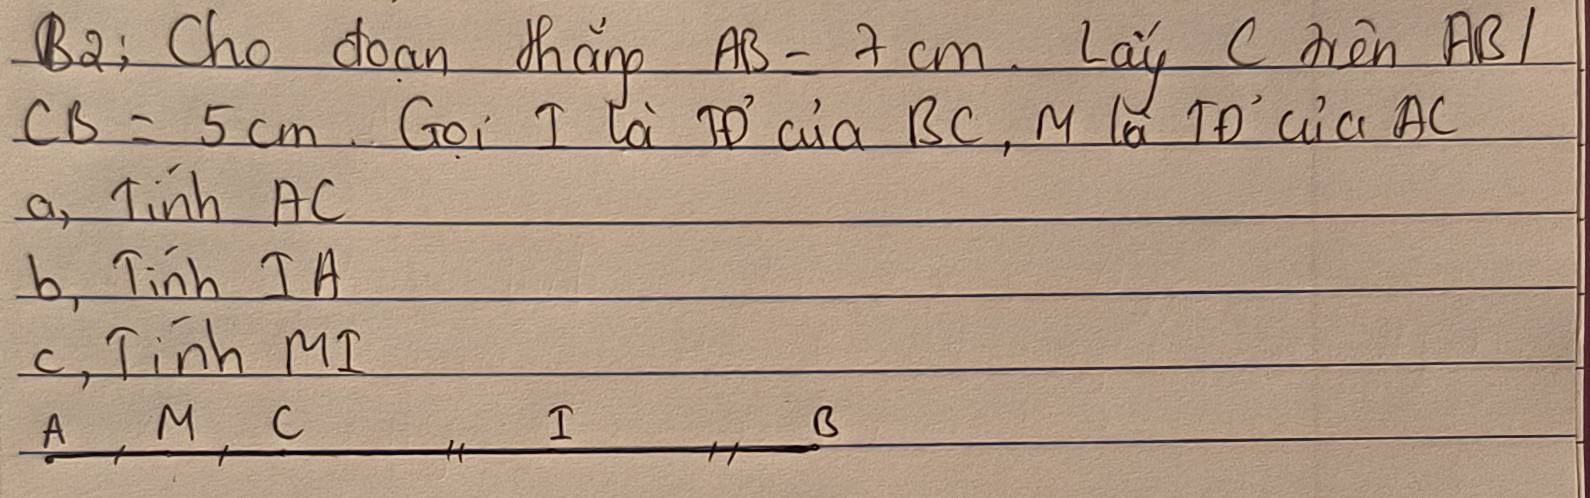 B2; Cho đoạn thẳng AB = 7 cm. Lấy C trên AB /
CB = 5 cm. Gọi I là TĐ' của BC, M là TĐ' của AC
a, Tính AC
b, Tính IA
c, Tính MI
A M C I B